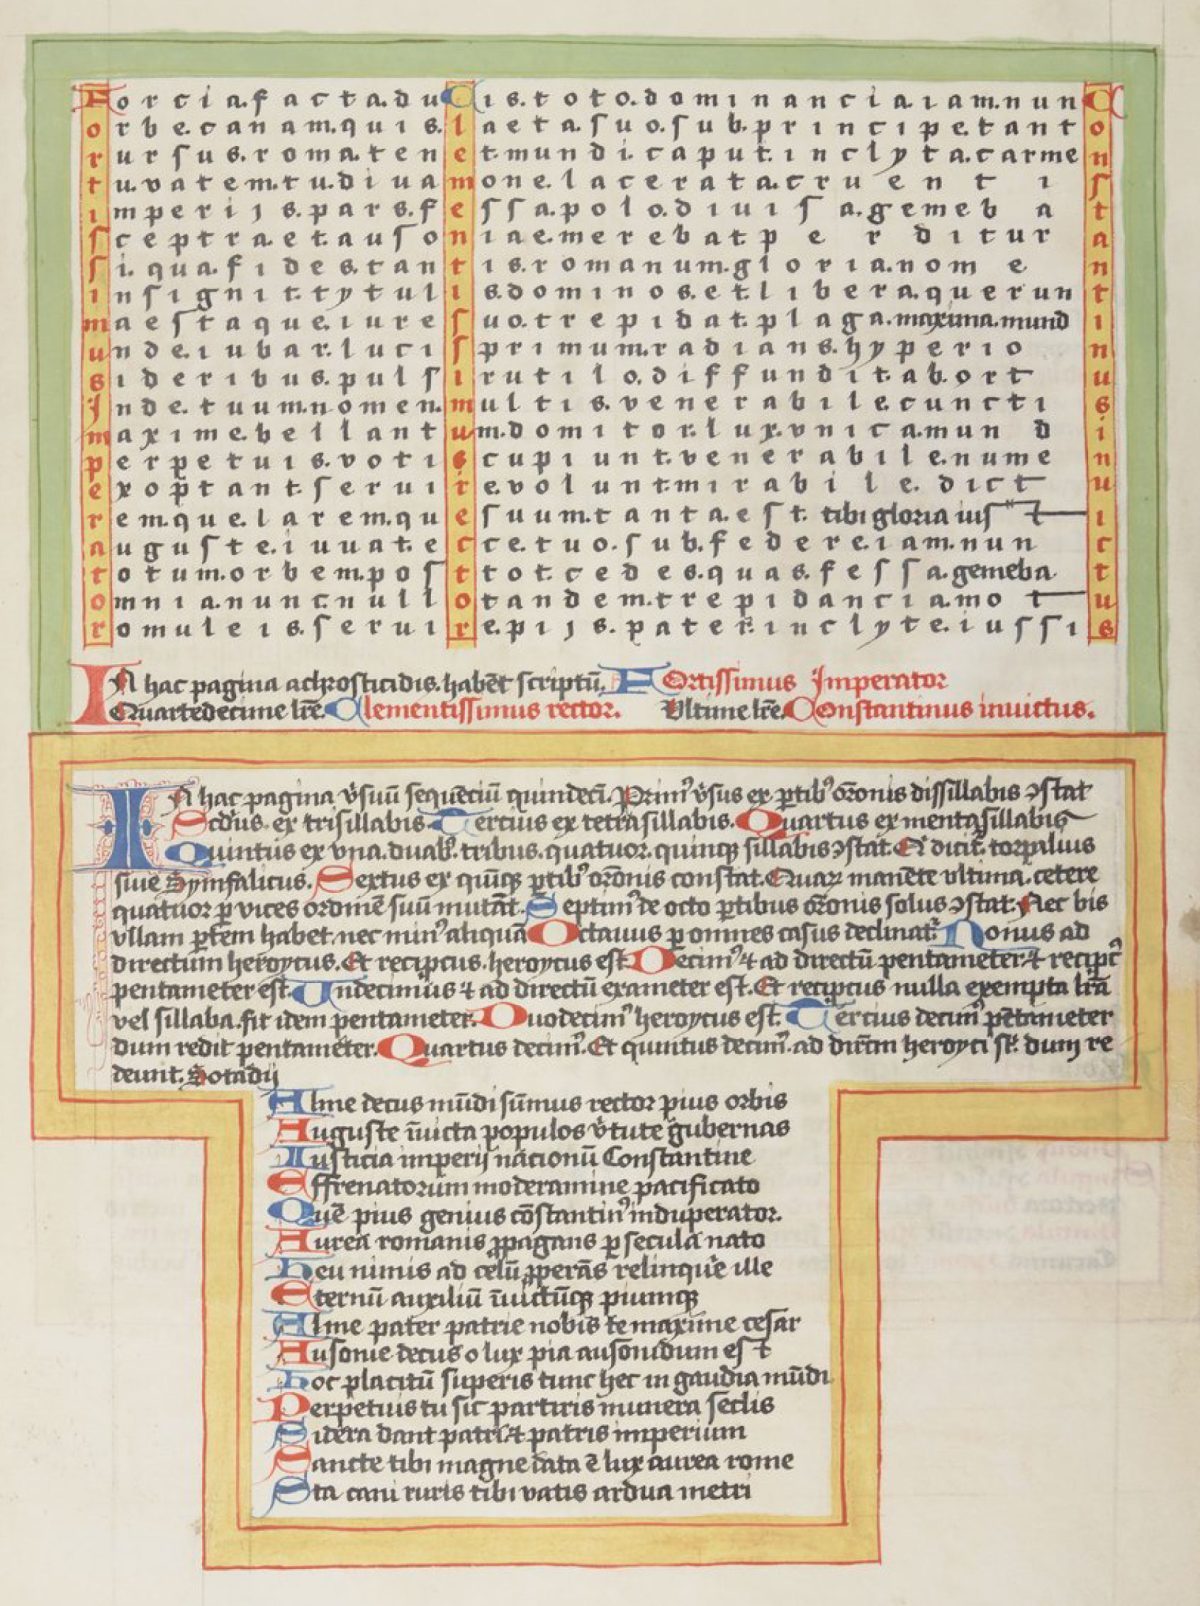 Forcia.facta.duCis.toto.dominancia.iam.nunC
orbe.canam.quis.laeta.suo.sub.principe.tanto
rursus.roma.tenet.mundi.caput.inclyta.carmen
tu.vatem.tu.diuamone.lacerata.cruentis
imperijs.pars.fessa.polo.diuisa.gemebat
sceptra.et.ausoniae.merebat perditura
si.qua.fides.tantis.romanum.gloria.nomen
insignit.tytulis.dominos.et.libera.querunt
maestaque.iure suo.trepidat.plaga.maxima.mundi
unde.iubar.lucis primum.radians.hyperion
sideribus.pulsi rutilo.diffundit.ab.ortu
Inde.tuum.nomen.multis.venerabile.cunctis
maxime.bellantum.domitor.lux.vnica.mundi
perpetuis.votis cupiunt.venerabile.numen
exoptant.seruire.volunt.mirabile.dictu
rem.que.larem.que suum.tanta.est.tibi gloria iusti
auguste.iuuat.ecce.tuo.sub.federe.iam.nunc
totum.orbem.post tot.cedes.quas.fessa.gemebat
omnia.nunc.nullo tandem.trepidancia.motu
romuleis.seruire.pijs.pater.inclyte.iussis
IN hac pagina achrosticidis.habēt scriptū. FOrtissimus Imperator
Quartedecime lr̄e. Clementissimus rector. Vltime lr̄e. Constantinus inuictus.
IN hac pagina v̄suū sequēciū quindecī. Prim᷒ v̄sus ex ꝑtib᷒ or̄onis dissillabis ꝯstat
Scd̄us ex trisillabis Tercius ex tetrasillabis. Quartus ex mentasillabis
Quintus ex vna.duab᷒.tribus.quatuor.quinqꝫ sillabis ꝯstat. Et dicit᷑ torpalius
siue Symfalicus. Sextus ex quīqꝫ ꝑtib᷒ or̄onis constat. Quaꝝ manēte vltima.cetere
quatuor ꝑ vices ordinē suū mutāt. Septim᷒ de octo ꝑtibus or̄onis solus ꝯstat. Nec bis
vllam ꝑtem habet.nec min᷒ aliquā Octauus ꝑ omnes casus declinat᷑. Nonus ad
directum heroycus. Et recip̄cus.heroycus est. Decim᷒ ⁊ ad directū pentameter.⁊ recip̄c᷒
pentameter est. Vndecimus ⁊ ad directū exameter est. Et recip̄cus nulla exempta lr̄a
vel sillaba.fit idem pentameter. Duodecim᷒ heroycus est. Tercius decim᷒ pētameter
dum redit pentameter. Quartus decim᷒. Et quintus decim᷒.ad dir̄cm heroyci st̄ dum re
deunt. Sotadij
Alme decus mūdi sūmus rector pius orbis
Auguste īuicta populos v̄tute gubernas
Iusticia imperij nacionū Constantine
Effrenatorum moderamine pacificato
Quē pius genius cōstantin᷒ induperator.
Aurea romanis ꝓpagans ꝑ secula nato
Heu nimis ad celū ꝓperās relinquē ille
Eternū auxiliū īuictūqꝫ piumqꝫ
Alme pater patrie nobis te maxime cesar
Ausonie decus o lux pia ausonidum est
Hoc placitū superis tunc hec in gaudia mūdi
Perpetuis tu sic partiris munera seclis
Sidera dant patri ⁊ patris imperium
Sancte tibi magne data ē lux aurea rome
Sta cani ruris tibi vatis ardua metri